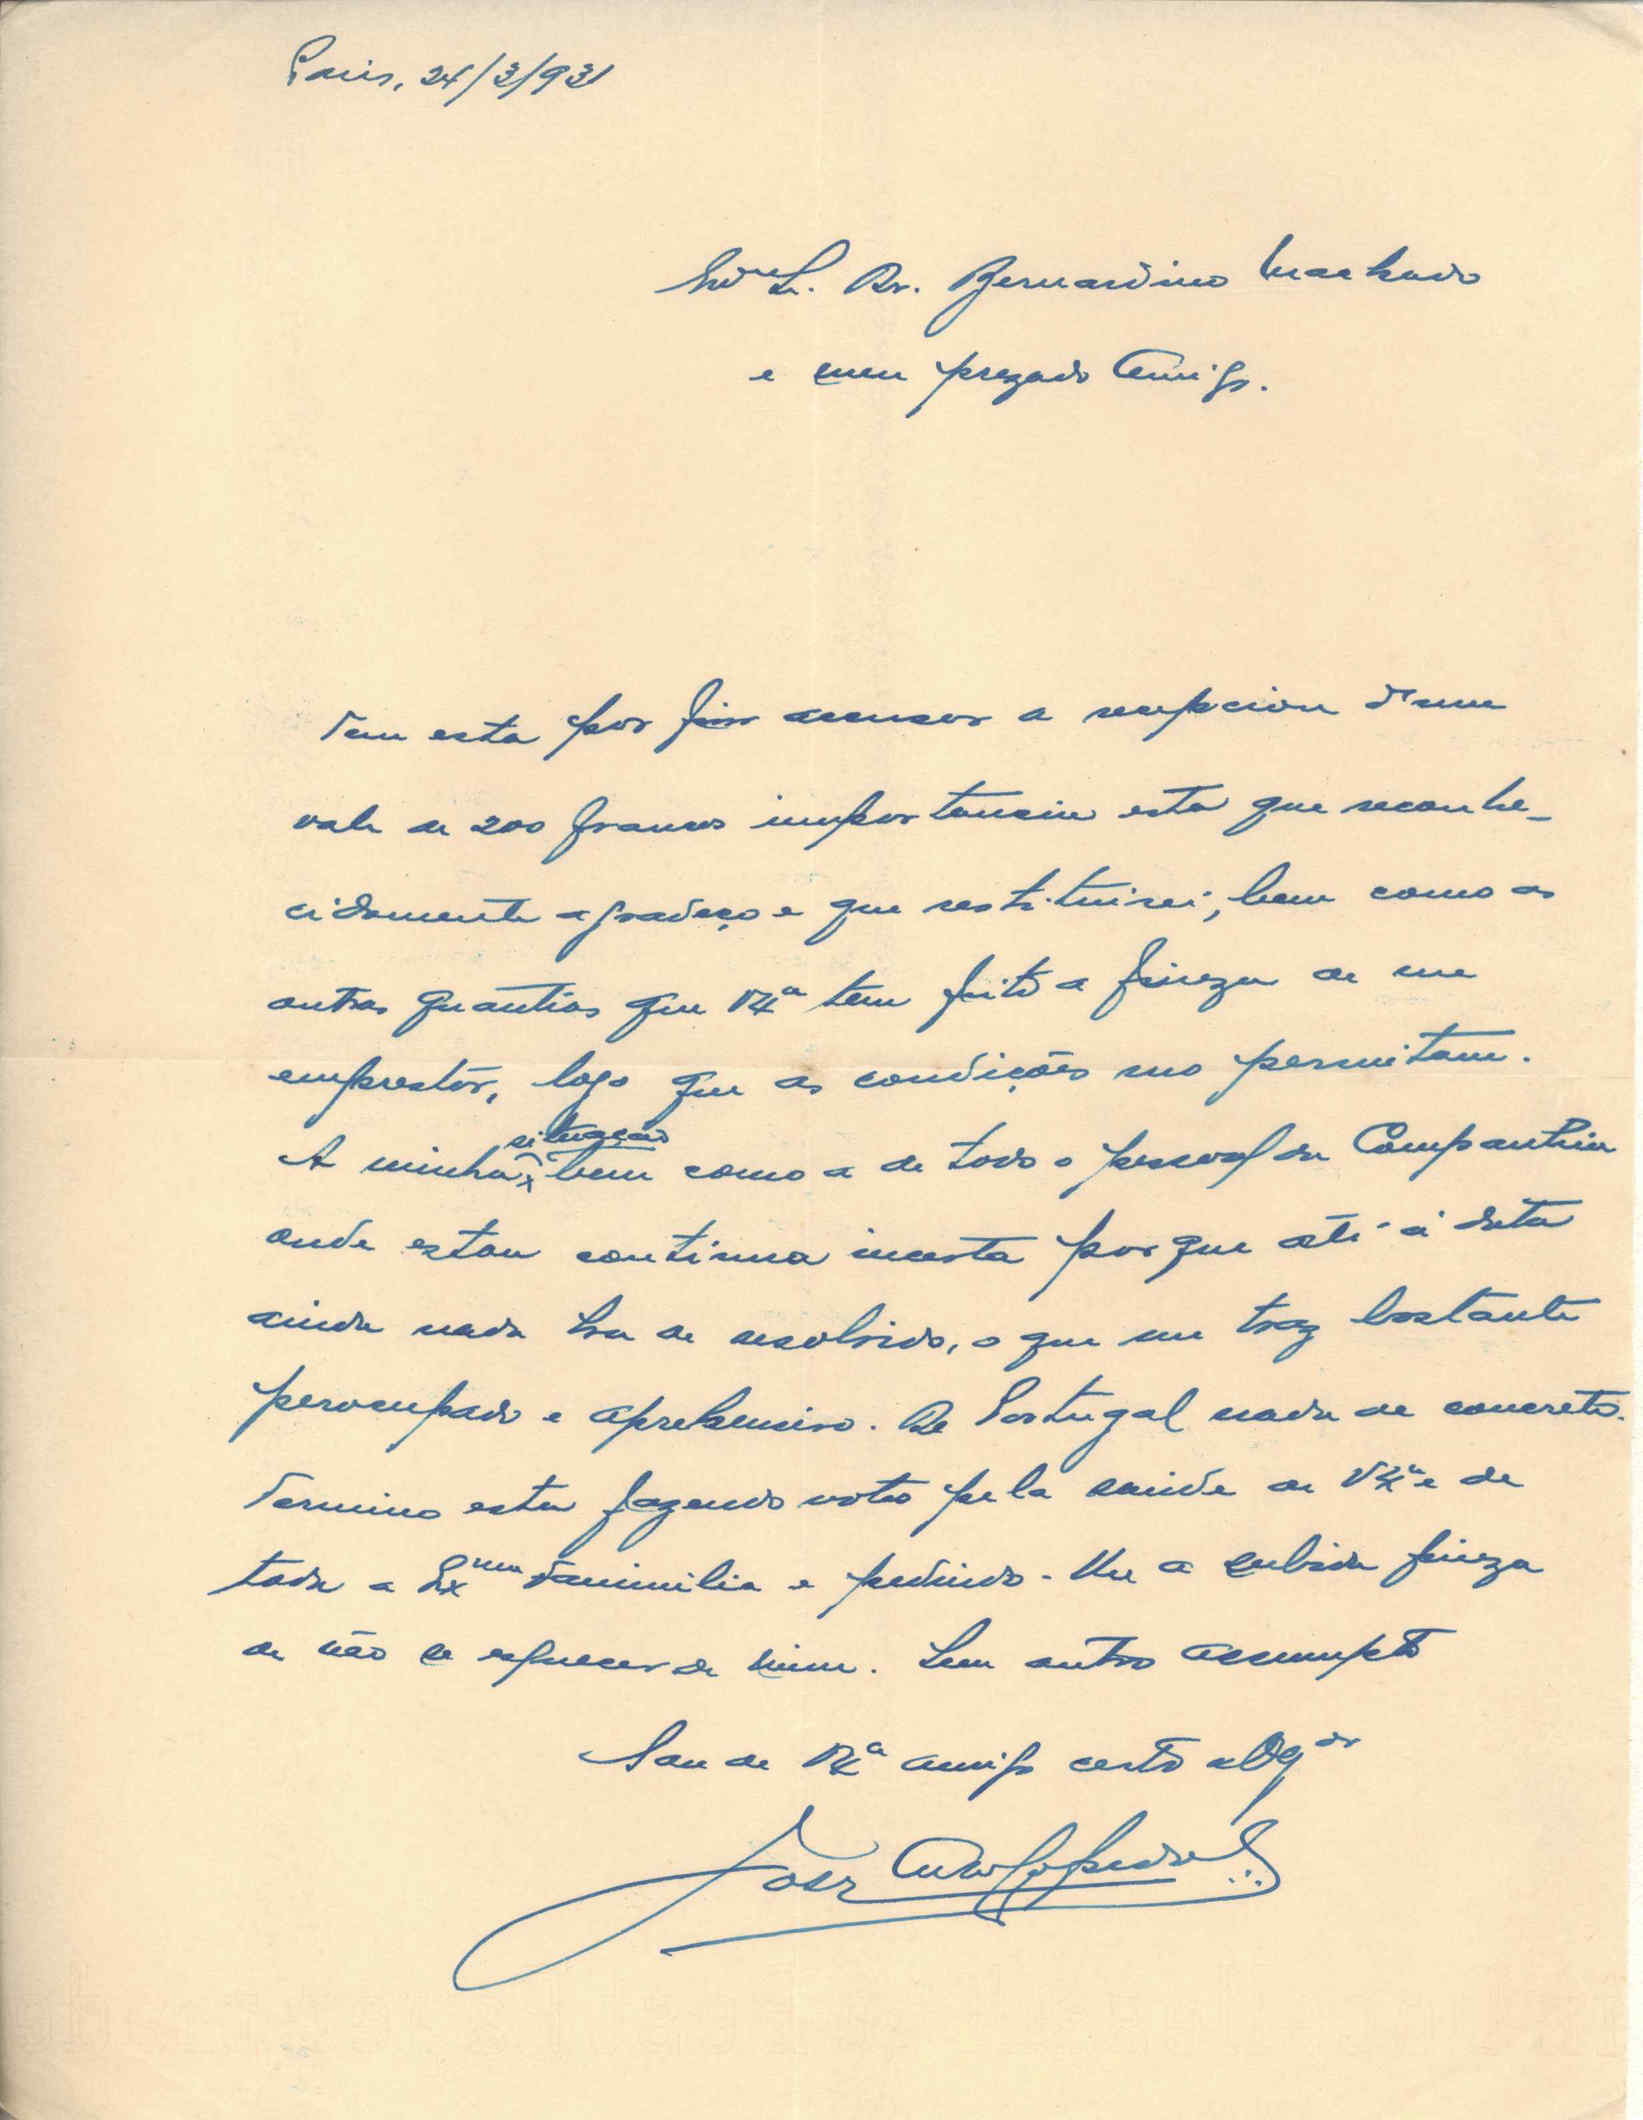 Paris, 24/3/931
Snr. Dr. Bernardino Machado
e meu prezado Amigo.
Tem esta por fim acusar a recepcion d'um
vale de 200 francos importancia esta que reconhe-
cidamente agradeço e que restituirei, bem como as
outras quantias que V Exª tem feito a fineza de me
emprestar, logo que as condições mo permitam.
A minha situação bem como a de todo o pessoal da Companhia
onde estou continua incerta porque até á data
ainda nada ha de resolvido, o que me traz bastante
perocupado e aprehensivo. De Portugal nada de concreto.
Termino esta fazendo votos pela saude de V Exª e de
toda a Exma Familia e pedindo-lhe a subida fineza
de não se esquecer de mim. Sem outro assumpto
Sou de V Exª amigo certo e Obgdo
José